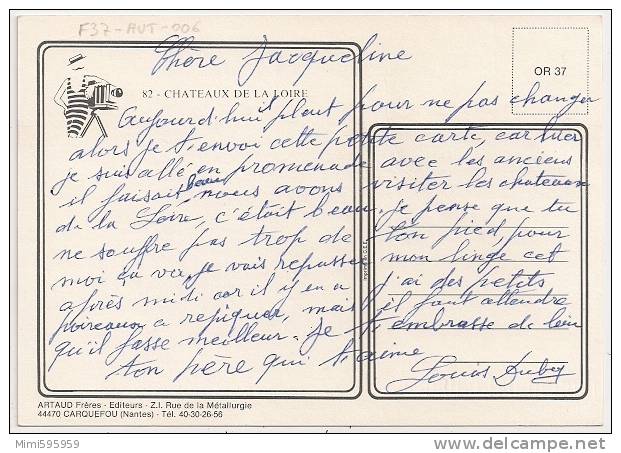 F37-AUT-006
Chère Jacqueline
OR 37
82 - CHATEAUX DE LA LOIRE
Aujourd'hui il pleut pour ne pas changer
alors je t'envoi cette petite carte, car hier
je suis allé en promenade avec les anciens
il faisait beau nous avons visiter les chateaux
de la Loire, c'était beau, je pense que tu
ne souffre pas trop de ton pied, pour
moi ça va, je vais repasser mon linge cet
après midi car il y en a j'ai des petits
poireaux a repiquer, mais il faut attendre
qu'il fasse meilleur. Je t'embrasse de loin
ton père qui t'aime
Louis
ARTAUD Frères - Editeurs - Z.I. Rue de la Métallurgie
44470 CARQUEFOU (Nantes) - Tél. 40-30-26-56
Mimi595959
delcampe.net